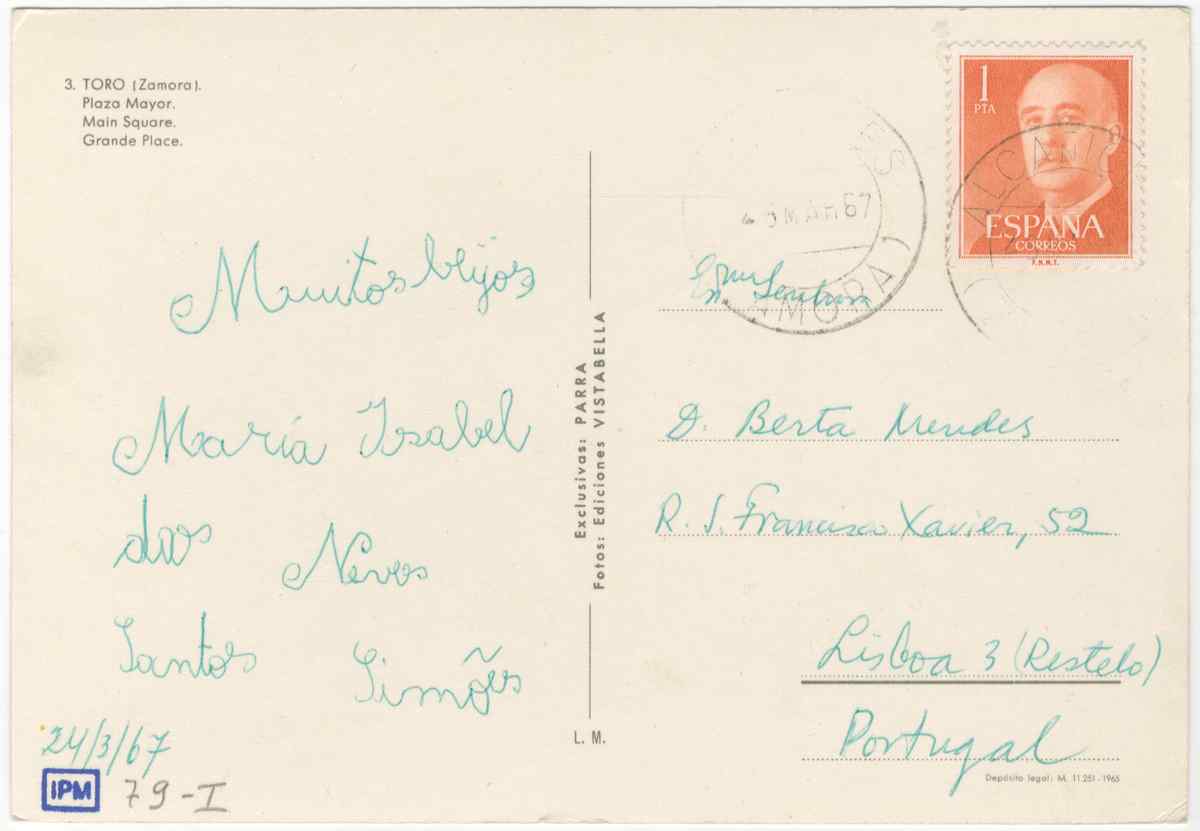 3. TORO (Zamora).
Plaza Mayor.
Main Square.
Grande Place.
1
PTA
ESPAÑA
CORREOS
F.N.M.T.
MAR 67
AMORA)
ALCAÑIC
Muitos beijos
María Isabel
das Neves
Santos Simões
24/3/67
IPM
79-I
Exclusivas: PARRA
Fotos: Ediciones VISTABELLA
L. M.
Exma Senhora
D. Berta Mendes
R. S. Francisco Xavier, 52
Lisboa 3 (Restelo)
Portugal
Depósito legal: M. 11.251-1965